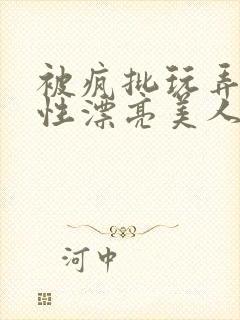 被疯批玩弄
性漂亮美人
河中